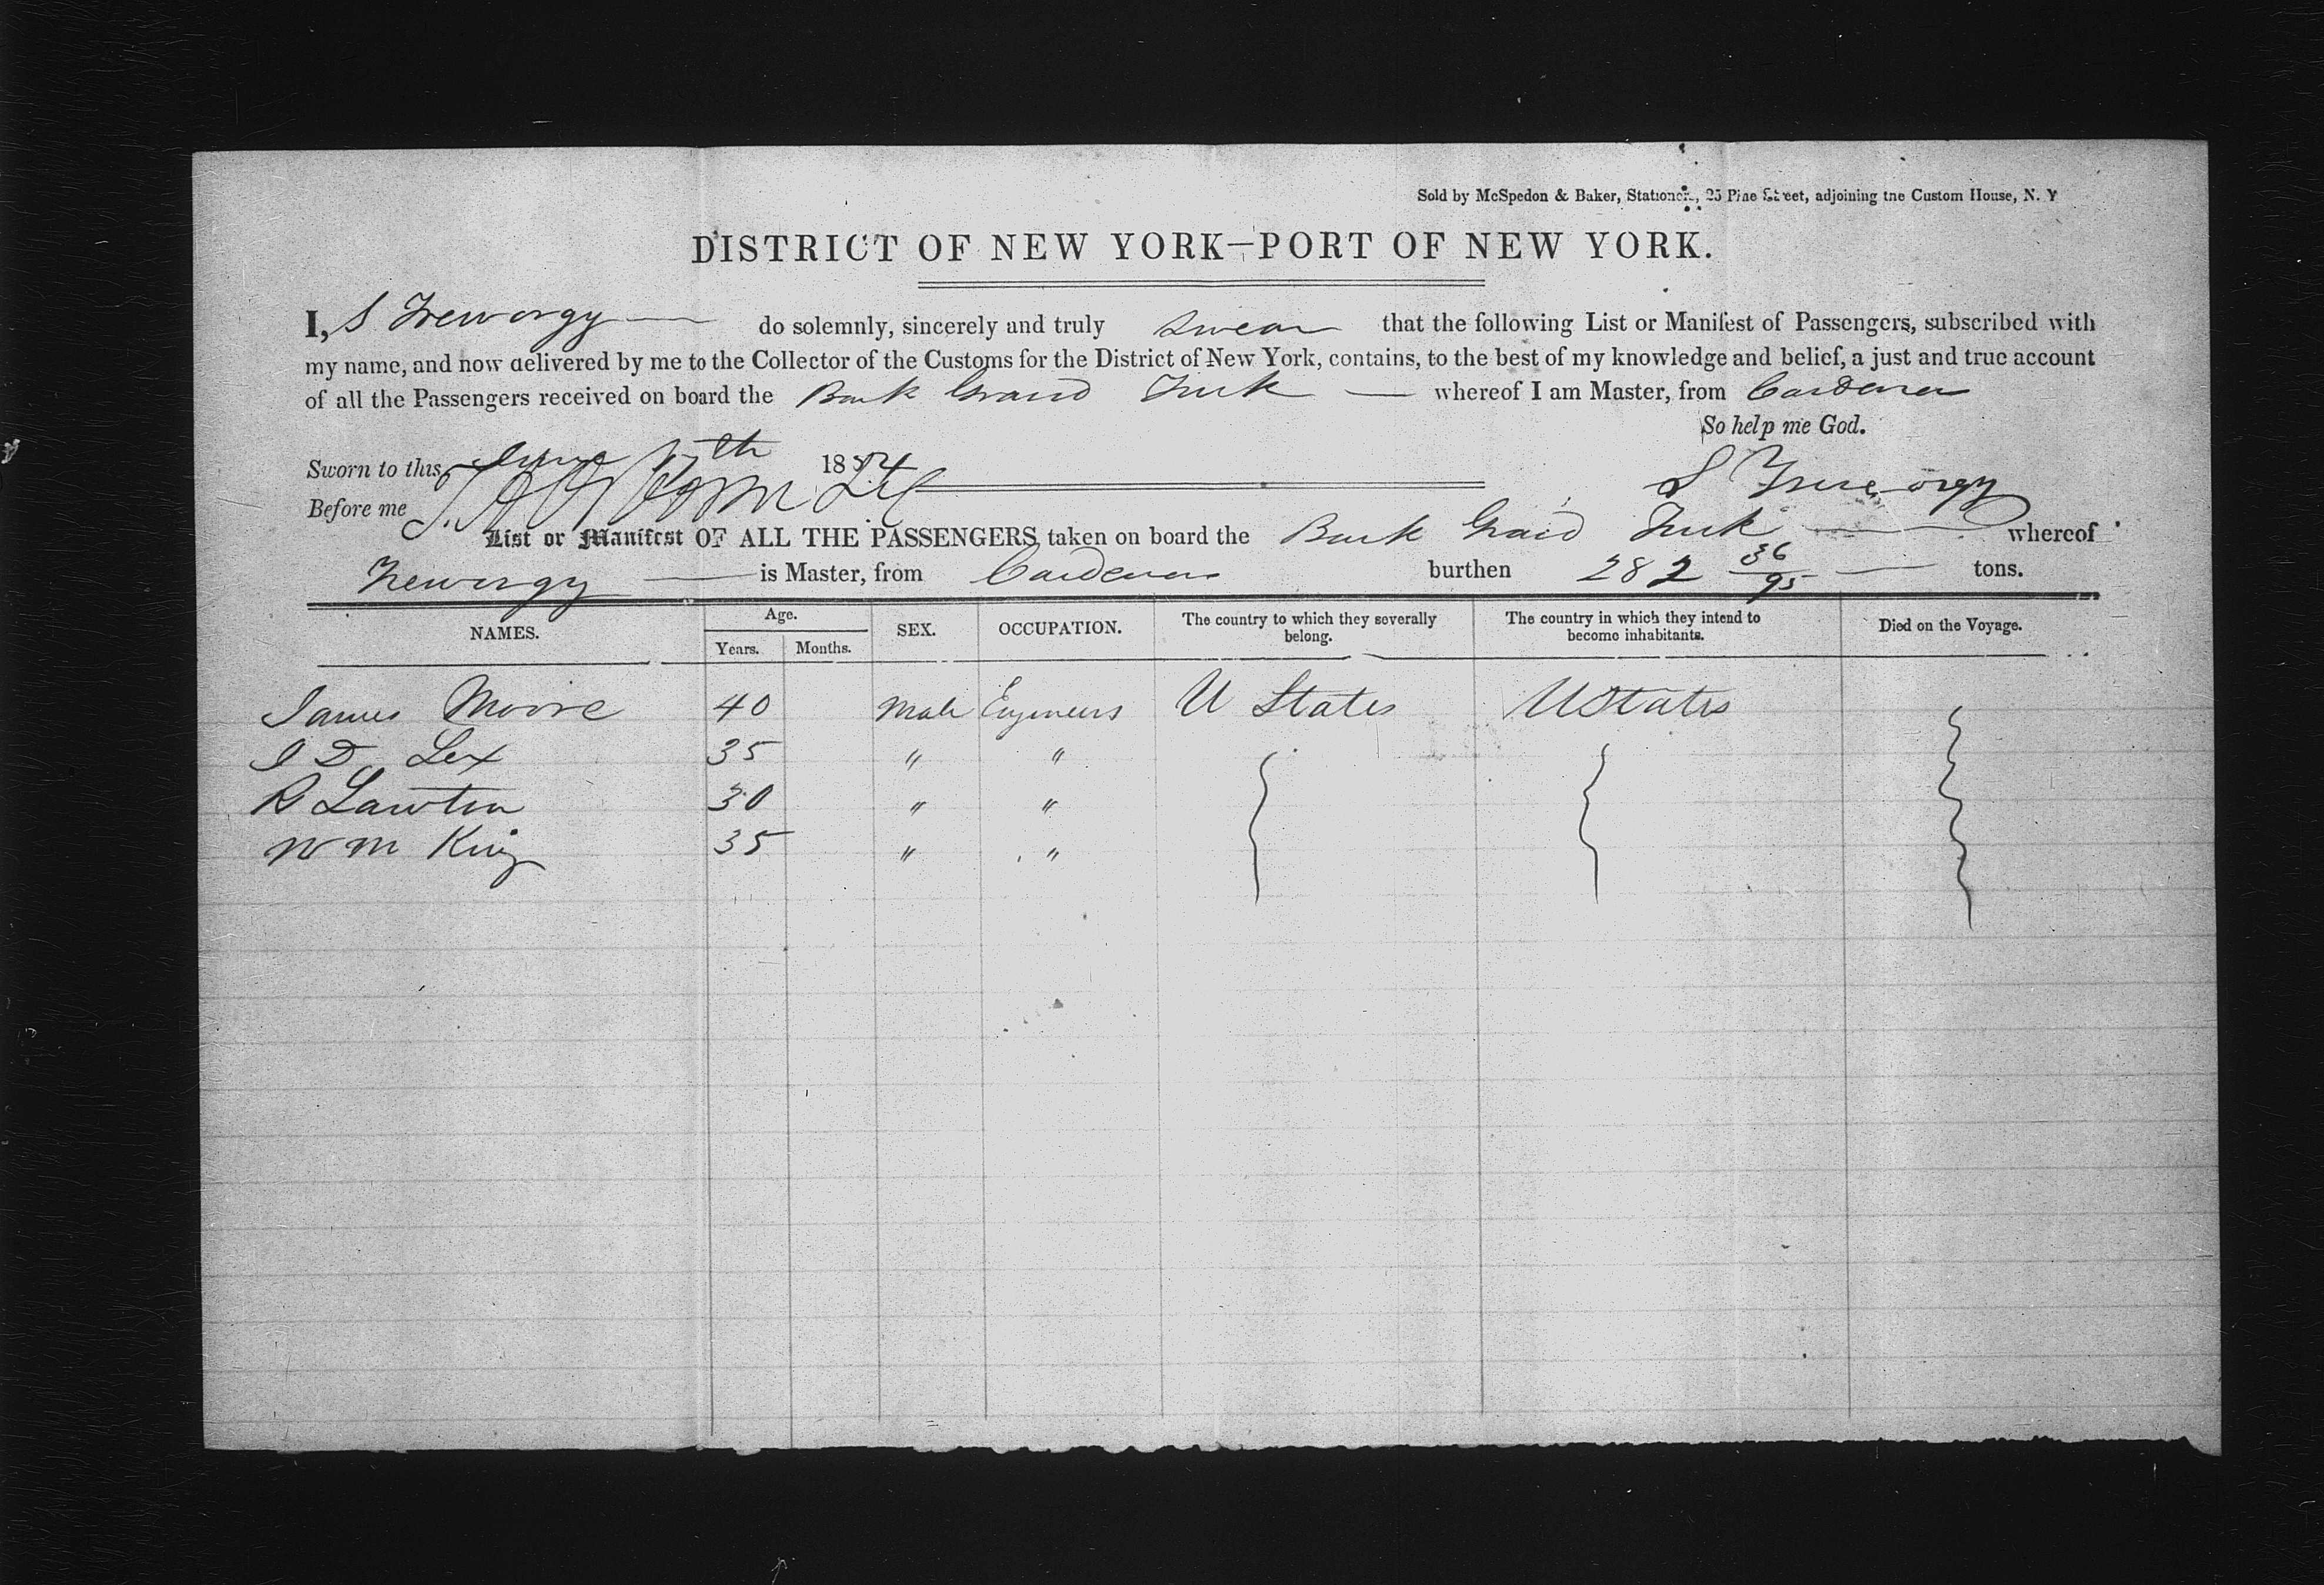 Sold by McSpedon & Baker, Stationers, 25 Pine Street, adjoining the Custom House, N. Y
DISTRICT OF NEW YORK—PORT OF NEW YORK.
I, S Treworgy — do solemnly, sincerely and truly swear that the following List or Manifest of Passengers, subscribed with
my name, and now delivered by me to the Collector of the Customs for the District of New York, contains, to the best of my knowledge and belief, a just and true account
of all the Passengers received on board the Bark Grand Turk — whereof I am Master, from Cardenas
So help me God.
Sworn to this June th 1854
S Treworgy
Before me
List or Manifest OF ALL THE PASSENGERS taken on board the Bark Grand Turk — whereof
Treworgy — is Master, from Cardenas burthen 282 36/95 — tons.
NAMES. Age. SEX. OCCUPATION. The country to which they severally belong. The country in which they intend to become inhabitants. Died on the Voyage.
Years. Months.
James Moore 40 Male Engineers U States U States
J D Lex 35 " "
R Lawton 30 " "
Wm King 35 " "